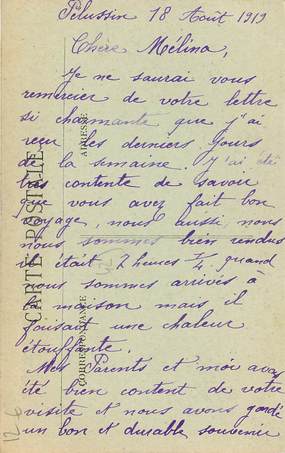 Pélussin 18 Août 1919
Chère Mélina,
Je ne saurai vous
remercier de votre lettre
si charmante que j'ai
reçu les derniers jours
de la semaine. J'ai été
très contente de savoir
que vous avez fait bon
voyage, nous aussi nous
nous sommes bien rendus
il était 2 heures ¼ quand
nous sommes arrivés à
la maison mais il
faisait une chaleur
étouffante.
Mes Parents et moi avons
été bien content de votre
visite et nous avons gardé
un bon et durable souvenir
CARTE POSTALE
ADRESSE
CORRESPONDANCE